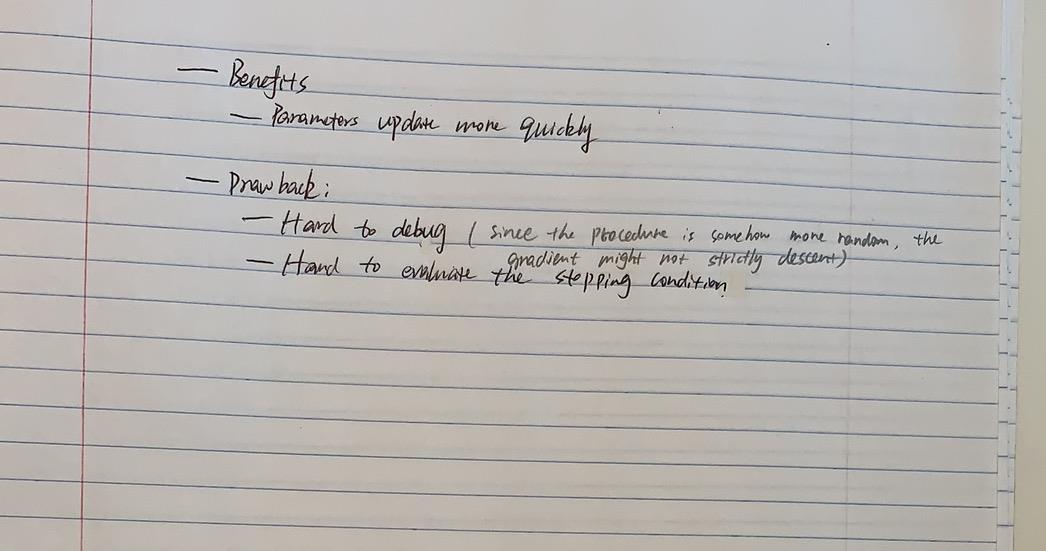 — Benefits
— Parameters update more quickly
— Drawback:
— Hard to debug ( since the procedure is somehow more random, the
gradient might not strictly descent)
— Hard to evaluate the stepping condition